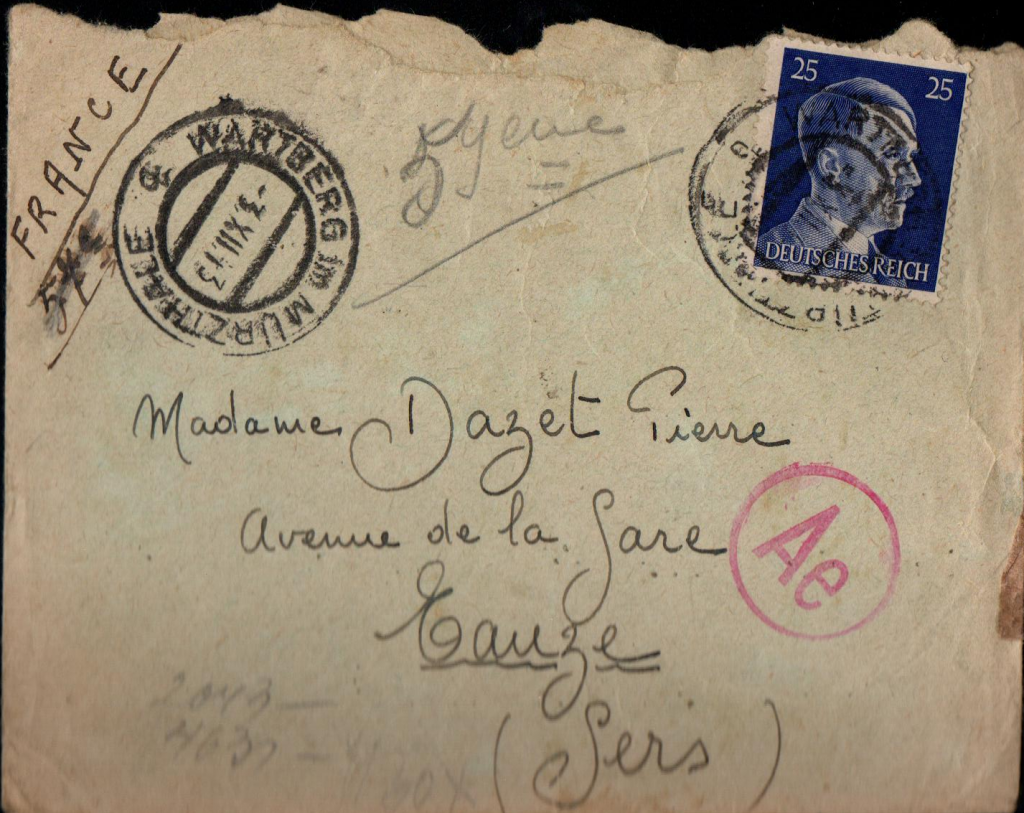 FRANCE
WARTBERG im MÜRZTHALE
-3.XII.43
25 25
DEUTSCHES REICH
WARTBERG
Madame Dazet Pierre
Avenue de la Gare
Eauze
(Gers)
Ae
2043 —